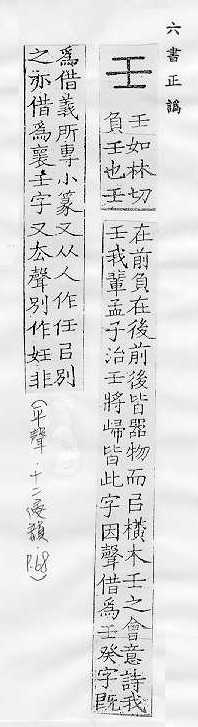 六書正譌
壬
壬如林切
負壬也壬
在前負在後前後皆器物而㠯橫木壬之會意詩我
壬我輩孟子治壬將歸皆此字因聲借爲壬癸字旣
爲借義所專小篆又从人作任㠯別
之亦借爲褱壬字又厺聲別作妊非
(平聲．十二侵韻 P.68)